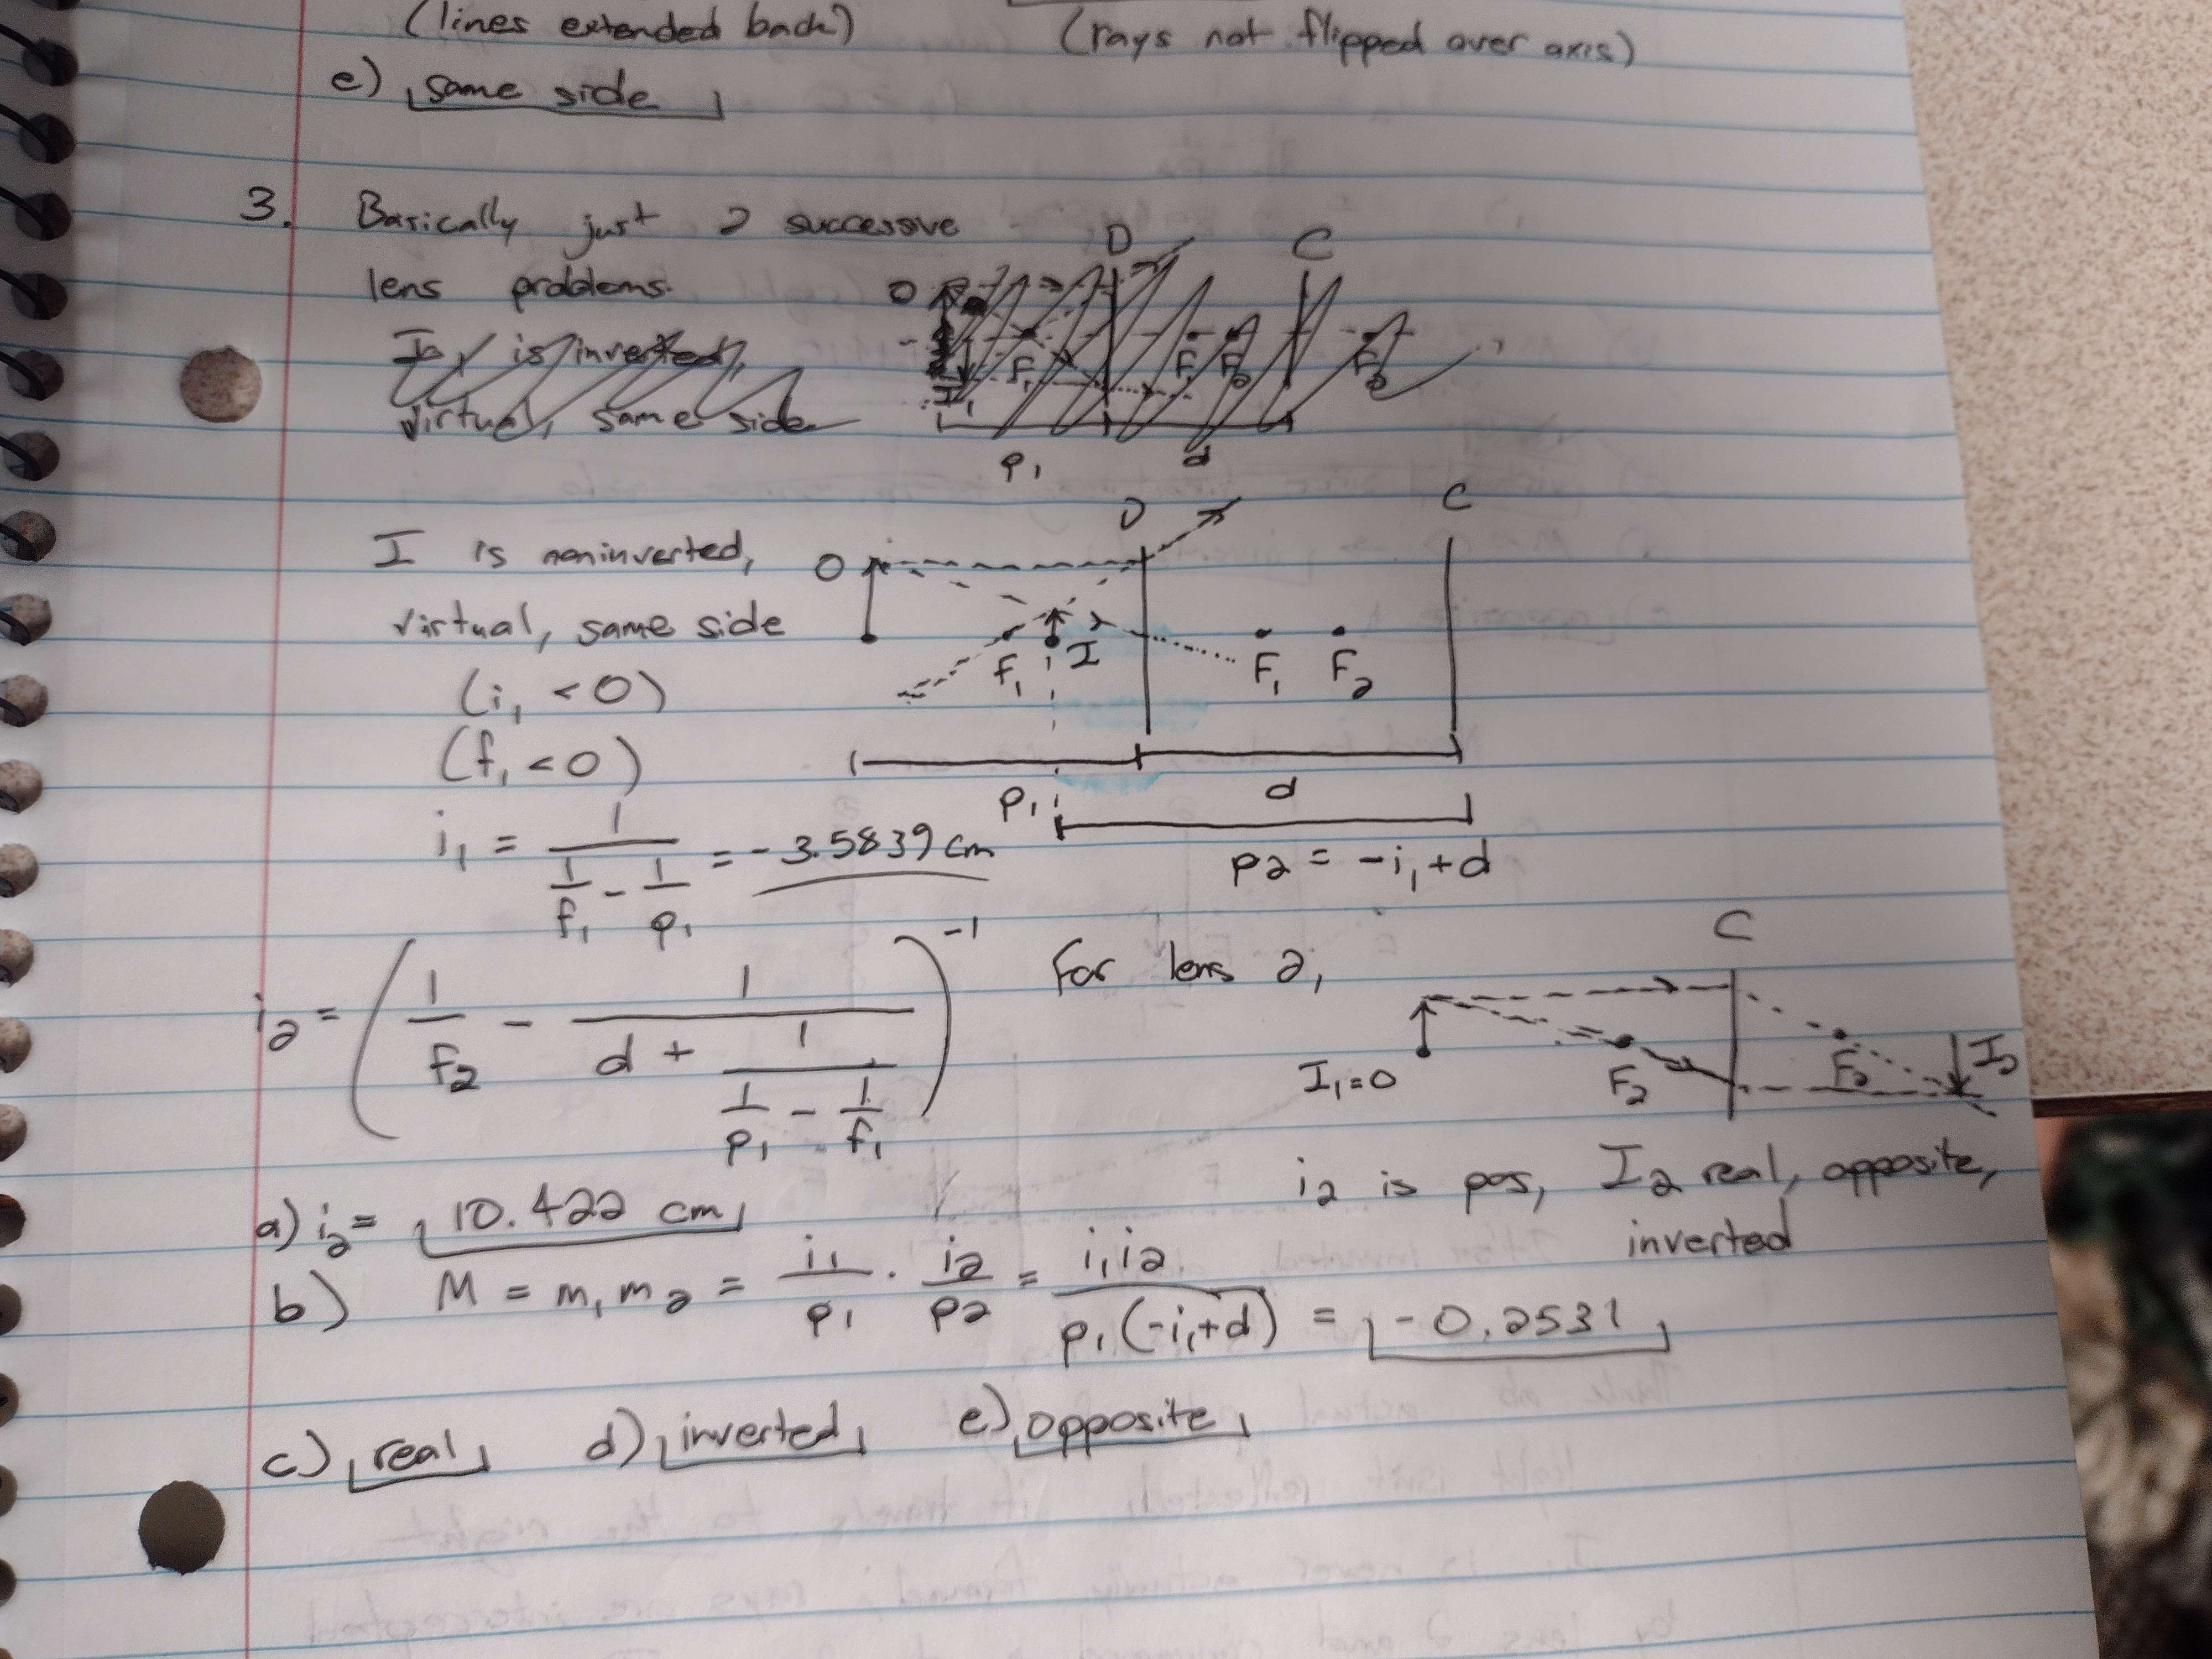 (lines extended back)
(rays not flipped over axis)
e) same side
3. Basically just 2 successive
lens problems.
is inverted,
virtual, same side
D C
O
F1 F1 F2 F2
I1
p1 d
I is noninverted,
virtual, same side
(i1 < 0)
(f1 < 0)
D C
O
F1 I F1 F2
p1 d
p2 = -i1 + d
i1 = 1 / (1/f1 - 1/p1) = -3.5839 cm
i2 = (1/f2 - 1/(d + 1/(1/p1 - 1/f1)))^-1
For lens 2,
C
I1 = O F2 F2 I2
i2 is pos, I2 real, opposite,
inverted
a) i2 = 10.422 cm
b) M = m1 m2 = i1/p1 · i2/p2 = i1i2 / p1(-i1+d) = -0.2531
c) real d) inverted e) opposite